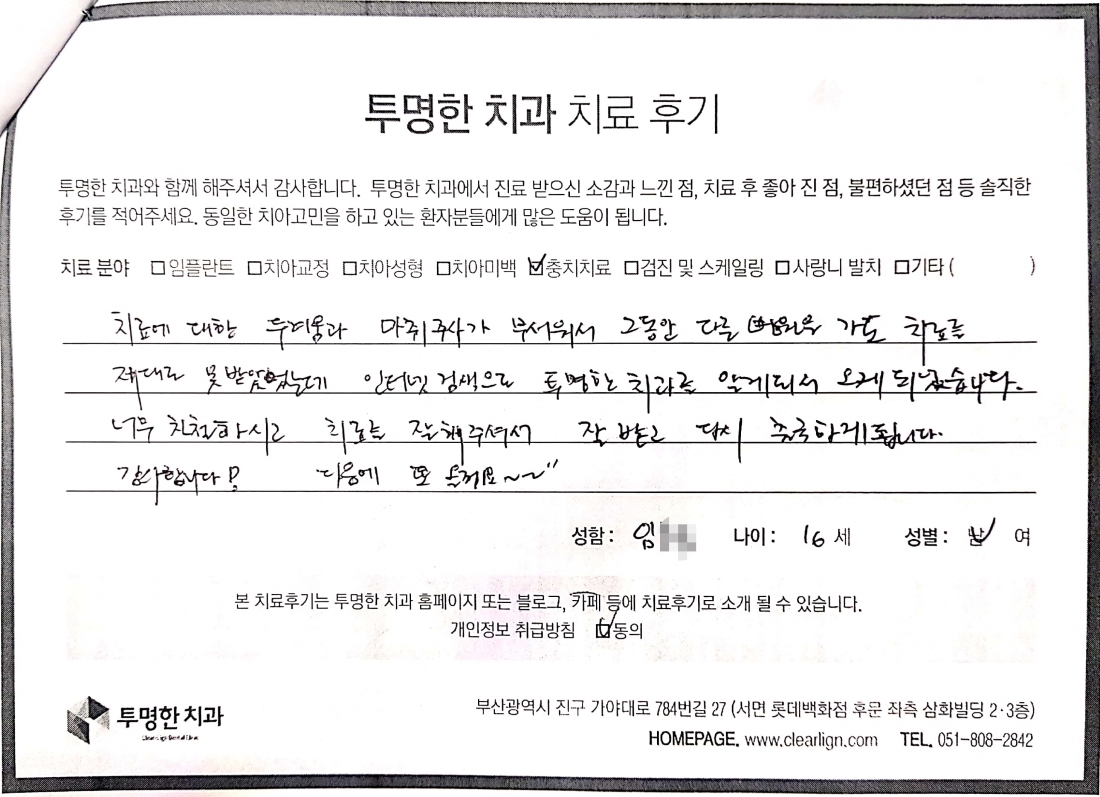 투명한 치과 치료 후기
투명한 치과와 함께 해주셔서 감사합니다. 투명한 치과에서 진료 받으신 소감과 느낀 점, 치료 후 좋아 진 점, 불편하셨던 점 등 솔직한
후기를 적어주세요. 동일한 치아고민을 하고 있는 환자분들에게 많은 도움이 됩니다.
치료 분야 □임플란트 □치아교정 □치아성형 □치아미백 ☑충치치료 □검진 및 스케일링 □사랑니 발치 □기타 ( )
치료에 대한 두려움과 마취주사가 무서워서 그동안 다른 병원을 가도 치료를
제대로 못받았었는데 인터넷 검색으로 투명한 치과를 알게되서 오게 되었습니다.
너무 친절하시고 치료를 잘해주셔서 잘 받고 다시 출국하게됩니다.
감사합니다! 다음에 또 올게요~~"
성함 : 임 나이 : 16 세 성별 : 남 여
본 치료후기는 투명한 치과 홈페이지 또는 블로그, 카페 등에 치료후기로 소개 될 수 있습니다.
개인정보 취급방침 ☑동의
투명한 치과
부산광역시 진구 가야대로 784번길 27 (서면 롯데백화점 후문 좌측 삼화빌딩 2·3층)
HOMEPAGE. www.clearlign.com TEL. 051-808-2842